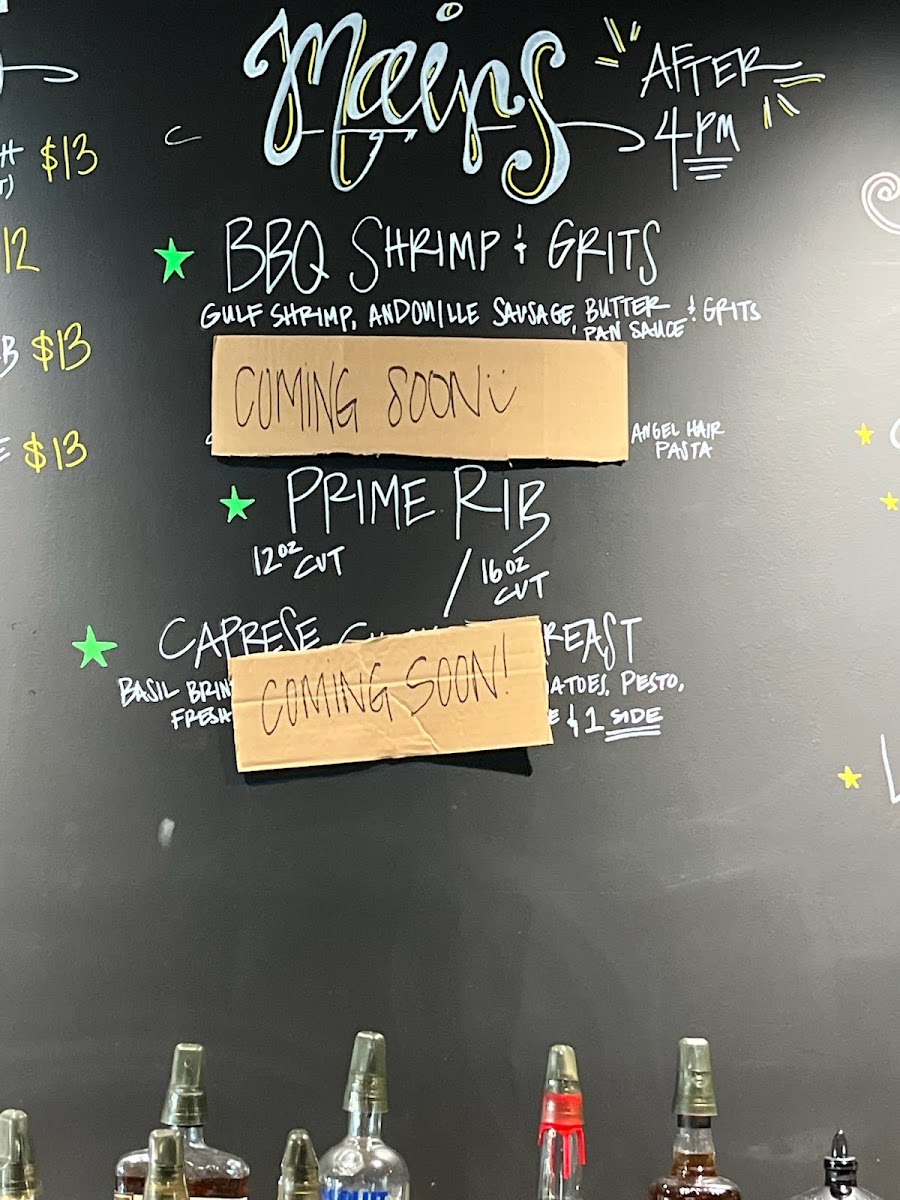 Mains
AFTER
4PM
$13
12
$13
$13
BBQ SHRIMP & GRITS
GULF SHRIMP, ANDOUILLE SAUSAGE, BUTTER & GRITS
PAN SAUCE
COMING SOON
ANGEL HAIR
PASTA
PRIME RIB
12oz CUT / 16oz CUT
CAPRESE
BASIL
PESTO,
FRESH
& 1 SIDE
COMING SOON!